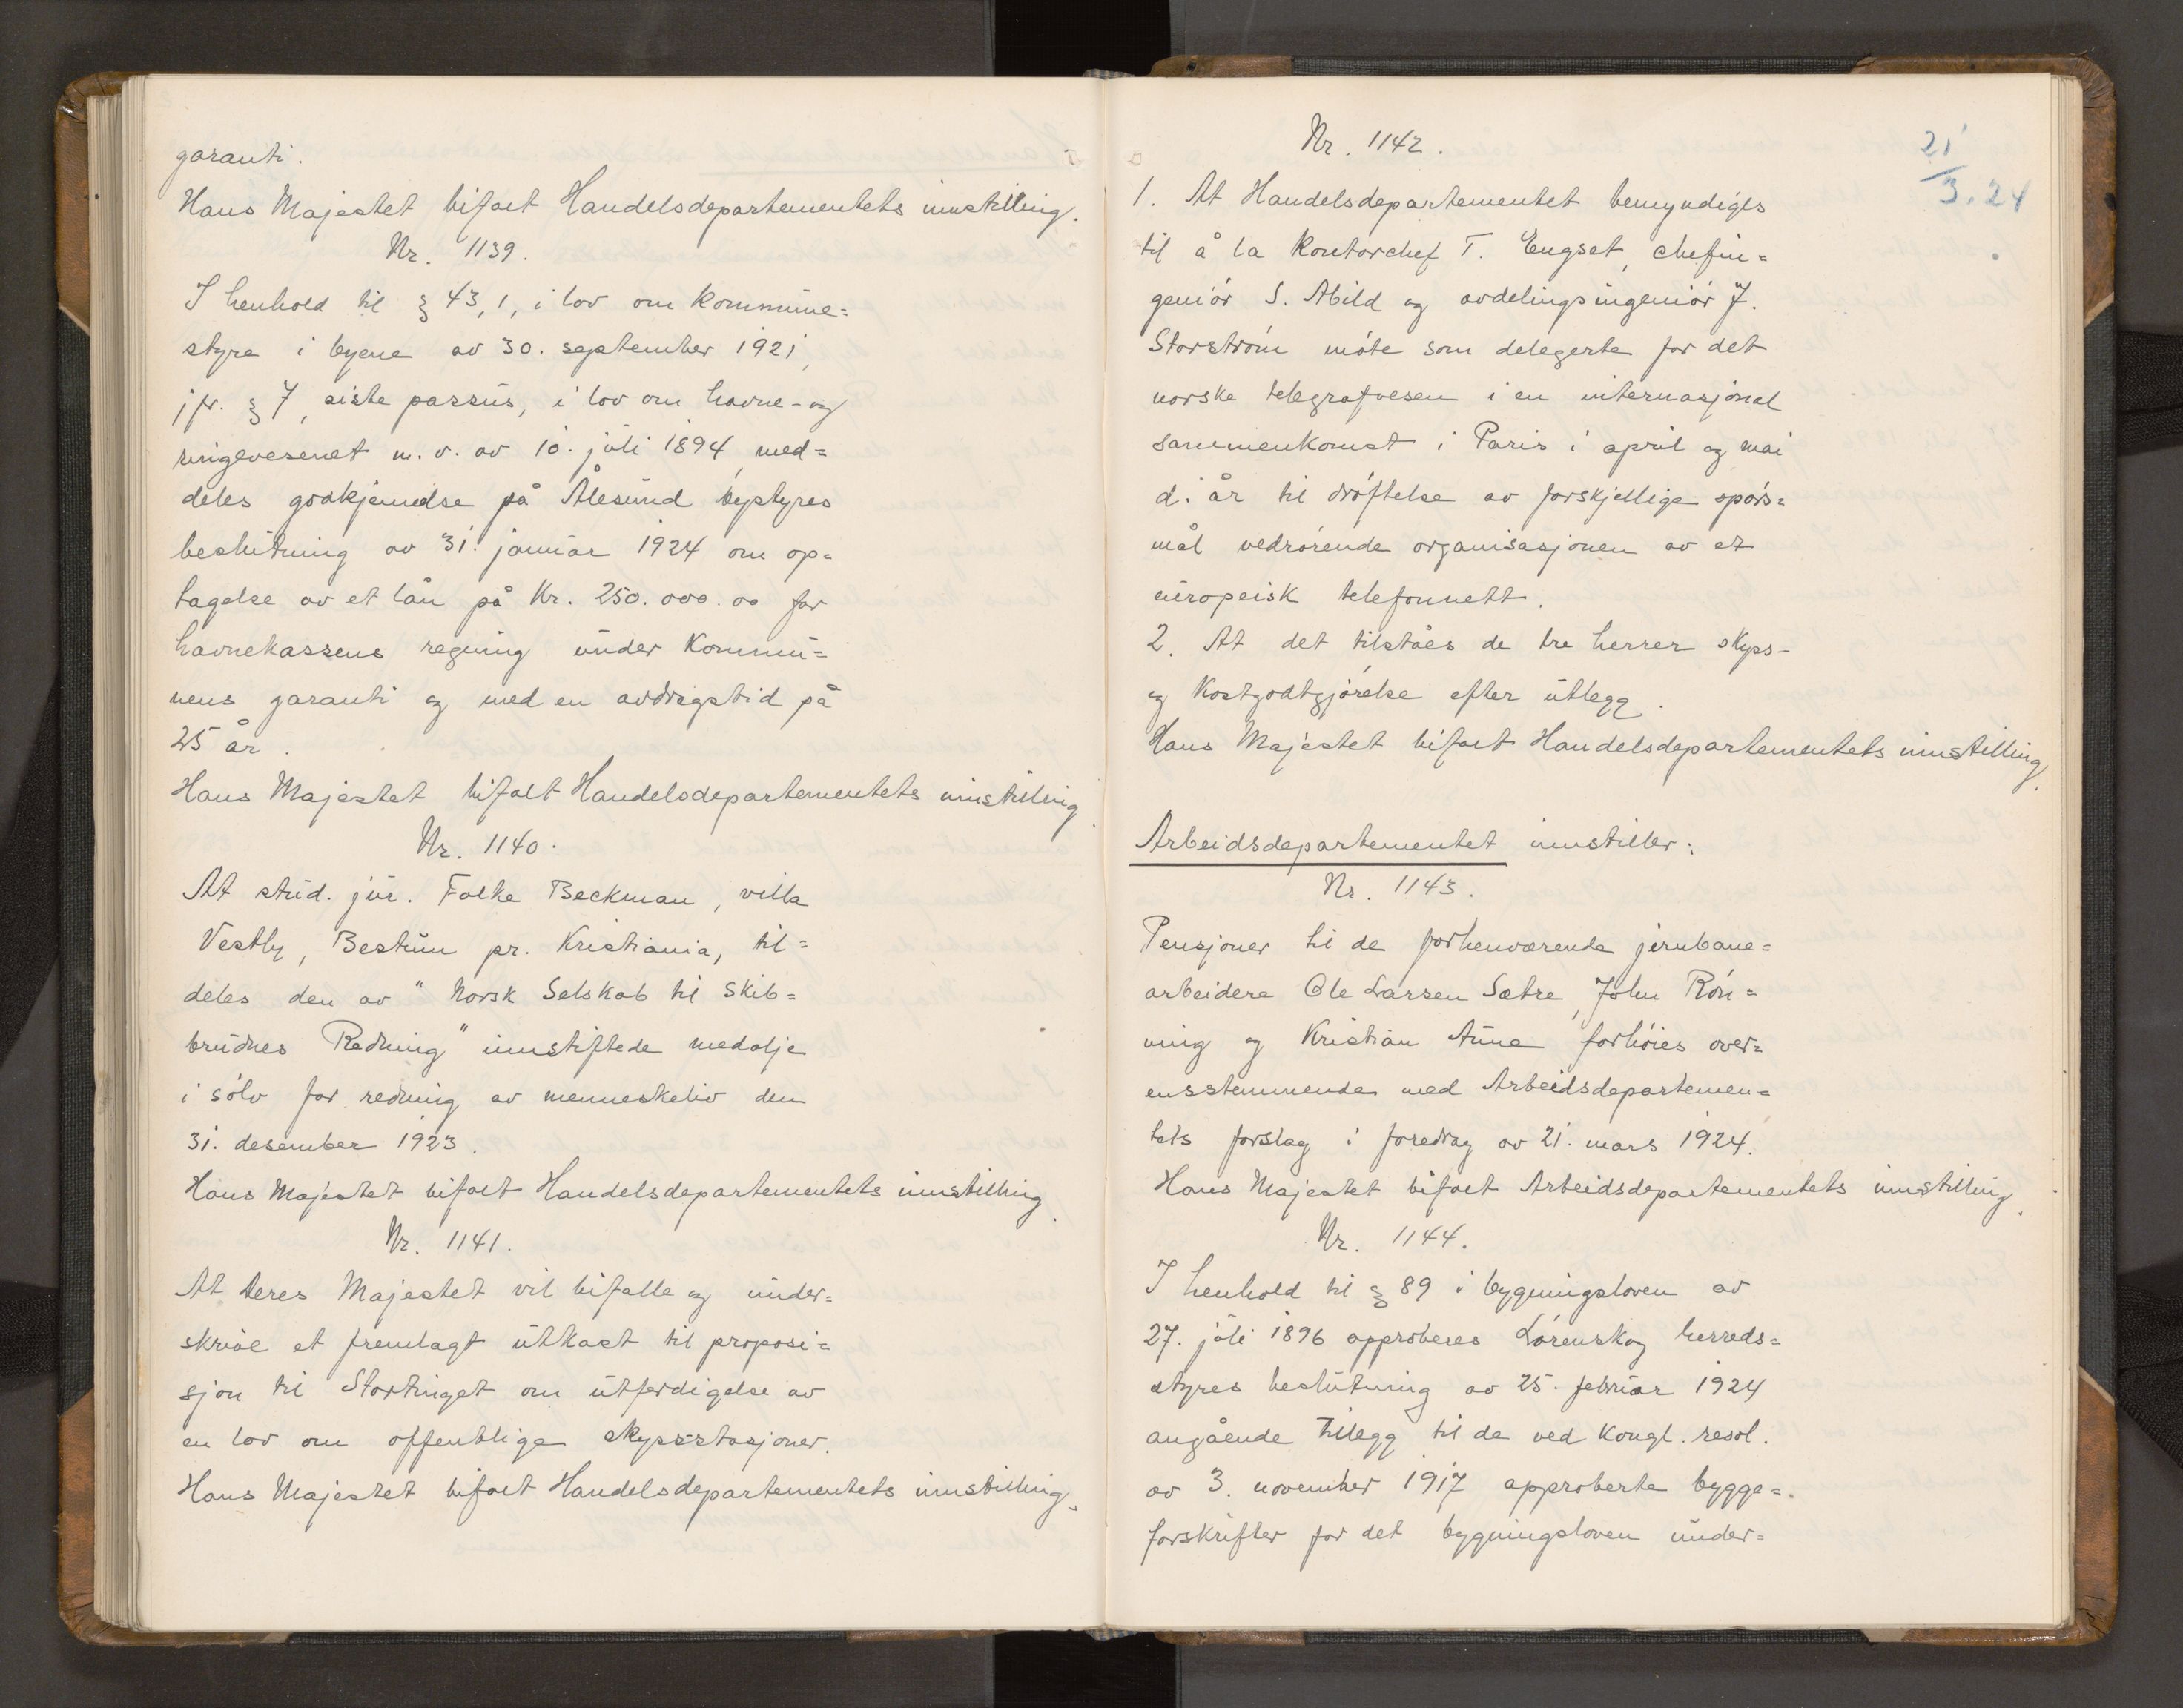 garanti.
Hans Majestet bifalt Handelsdepartementets innstilling.
Nr. 1139.
I henhold til § 43, 1, i lov om kommune=
styre i byene av 30. september 1921,
jfr. § 7, siste passus, i lov om havne- og
ringevesenet m. v. av 10. juli 1894, med=
deles godkjennelse på Ålesund bystyres
beslutning av 31. januar 1924 om op=
tagelse av et lån på Kr. 250.000.00 for
havnekassens regning under kommu=
nens garanti og med en avdragstid på
25 år.
Hans Majestet bifalt Handelsdepartementets innstilling.
Nr. 1140.
At stud. jur. Folke Beckman, villa
Vestly, Bestum pr. Kristiania, til=
deles den av "Norsk Selskab til Skib=
brudnes Redning" innstiftede medalje
i sølv for redning av menneskeliv den
31. desember 1923.
Hans Majestet bifalt Handelsdepartementets innstilling.
Nr. 1141.
At Deres Majestet vil bifalle og under=
skrive et fremlagt utkast til proposi=
sjon til Stortinget om utferdigelse av
en lov om offentlige skysstasjoner.
Hans Majestet bifalt Handelsdepartementets innstilling.
21/3.24
Nr. 1142.
1. At Handelsdepartementet bemyndiges
til å la kontorchef T. Engset, chefin=
geniør S. Abild og avdelingsingeniør J.
Storstrøm møte som delegerte for det
norske telegrafvesen i en internasjonal
sammenkomst i Paris i april og mai
d. år til drøftelse av forskjellige spørs=
mål vedrørende organisasjonen av et
europeisk telefonnett.
2. At det tilståes de tre herrer skyss-
og kostgodtgjørelse efter utlegg.
Hans Majestet bifalt Handelsdepartementets innstilling.
Arbeidsdepartementet innstiller:
Nr. 1143.
Pensjoner til de forhenværende jernbane=
arbeidere Ole Larsen Sætre, John Røn=
ning og Kristian Aune forhøies over=
ensstemmende med Arbeidsdepartemen=
tets forslag i foredrag av 21. mars 1924.
Hans Majestet bifalt Arbeidsdepartementets innstilling.
Nr. 1144.
I henhold til § 89 i bygningsloven av
27. juli 1896 approberes Lørenskog herreds=
styres beslutning av 25. februar 1924
angående tillegg til de ved kongl. resol.
av 3. november 1917 approberte bygge=
forskrifter for det bygningsloven under=